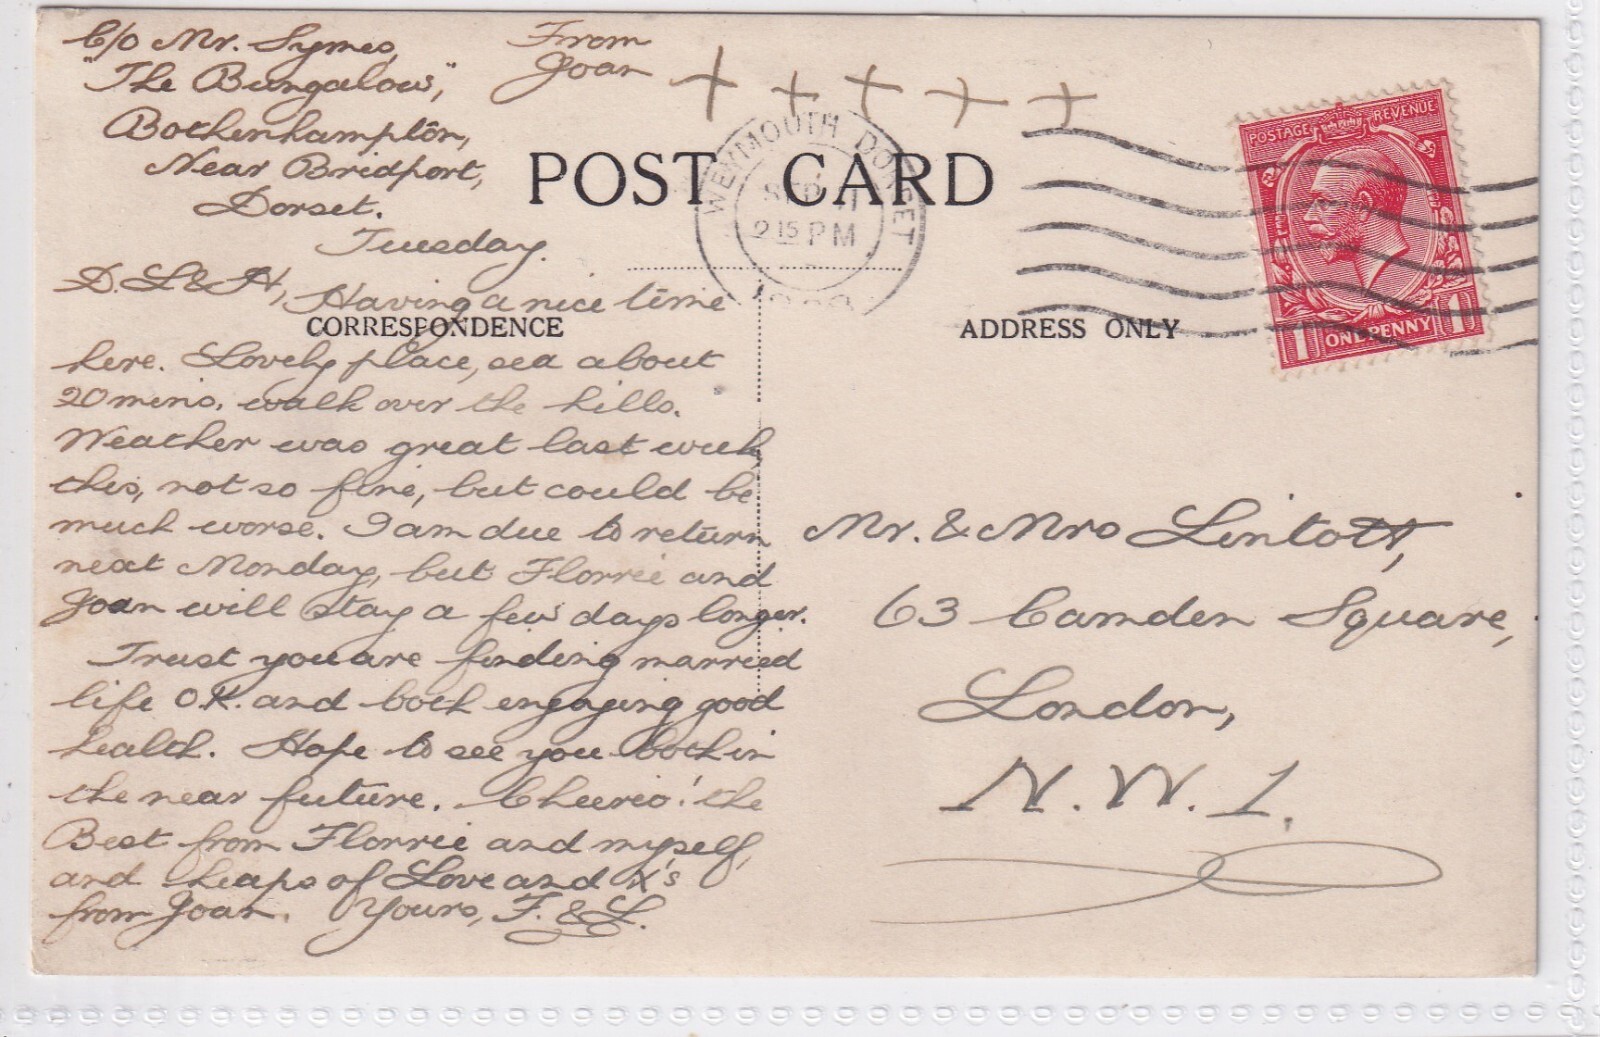 C/o Mr. Symes,
"The Bungalow",
Bothenhampton,
Near Bridport,
Dorset.
Tuesday.
From
Joan
+ + + + +
POST CARD
WEYMOUTH DORSET
SEP 11
2 15 PM
POSTAGE REVENUE
1 ONE PENNY 1
D. L & H, Having a nice time
CORRESPONDENCE
here. Lovely place, sea about
20 mins. walk over the hills.
Weather was great last week,
this, not so fine, but could be
much worse. I am due to return
next Monday, but Florrie and
Joan will stay a few days longer.
Trust you are finding married
life O.K. and both enjoying good
health. Hope to see you both in
the near future. Cheerio! the
Best from Florrie and myself,
and heaps of Love and X's
from Joan. Yours, F. & L.
ADDRESS ONLY
Mr. & Mrs Lintott,
63 Camden Square,
London,
N.W.1.